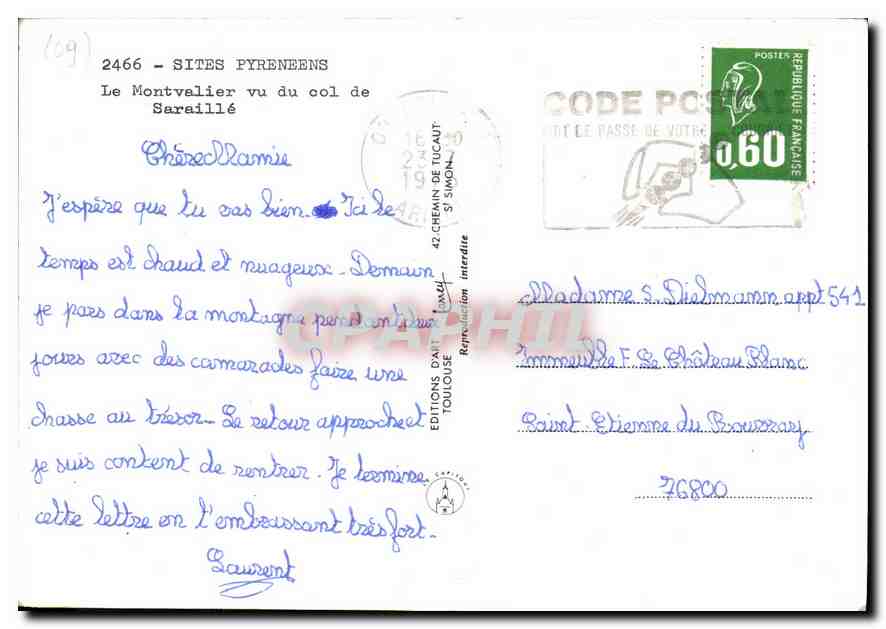 (09)
2466 - SITES PYRENEENS
Le Montvalier vu du col de
Saraillé
Chère Mamie
J'espère que tu vas bien. Ici le
temps est chaud et nuageux. Demain
je pars dans la montagne pendant deux
jours avec des camarades faire une
chasse au trésor. Le retour approche et
je suis content de rentrer. Je termine
cette lettre en t'embrassant très fort.
Laurent
EDITIONS D'ART Larrey 42, CHEMIN DE TUCAUT
TOULOUSE St SIMON
Reproduction interdite
CAPITOUL
CODE POSTAL
MOT DE PASSE DE VOTRE COURRIER
POSTES
REPUBLIQUE FRANÇAISE
0,60
Madame S. Dielmann appt 541
Immeuble F. Le Château Blanc
Saint. Etienne du Rouvray
76800
CPAPHIL